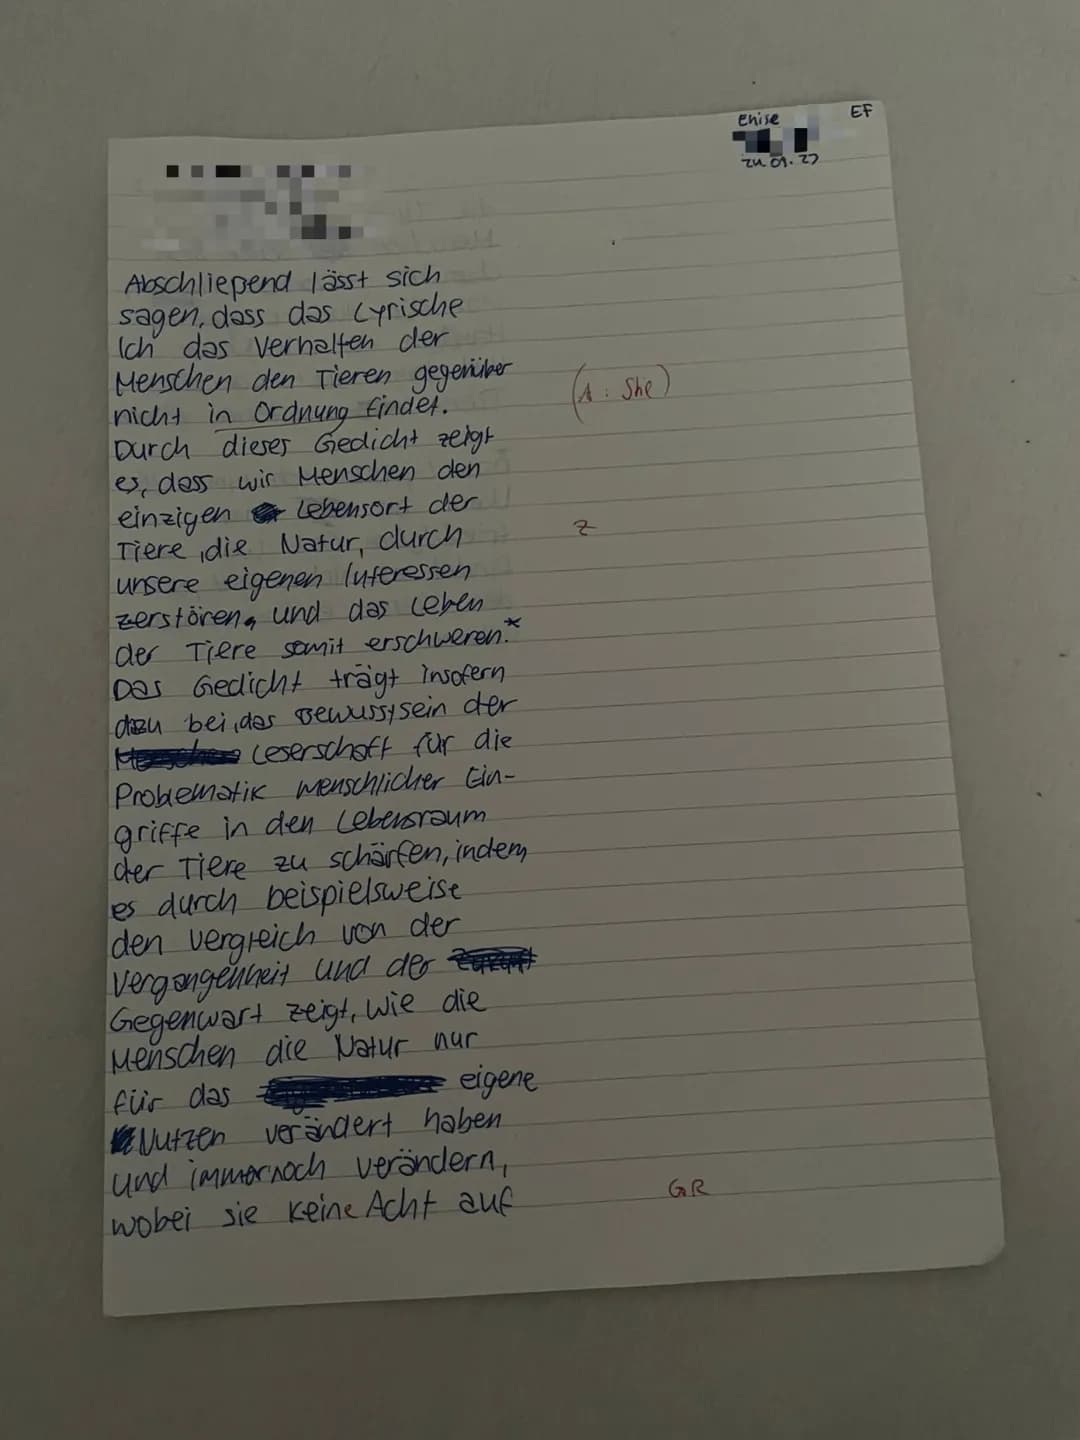 Enise
EF
24.01.23
Abschließend lässt sich
sagen, dass das Lyrische
Ich das Verhalten der
Menschen den Tieren gegenüber
nicht in Ordnung findet.
(A: Stie)
Durch dieses Gedicht zeigt
es, dass wir Menschen den
einzigen Lebensort der
Tiere, die Natur, durch
Z
unsere eigenen Interessen
zerstören, und das Leben
der Tiere somit erschweren.*
Das Gedicht trägt insofern
dazu bei, das Bewusstsein der
Leserschaft für die
Problematik menschlicher Ein-
griffe in den Lebensraum
der Tiere zu schärfen, indem
es durch beispielsweise
den Vergleich von der
Vergangenheit und der
Gegenwart zeigt, wie die
Menschen die Natur nur
für das eigene
Nutzen verändert haben
und immernoch verändern,
wobei sie keine Acht auf
GR